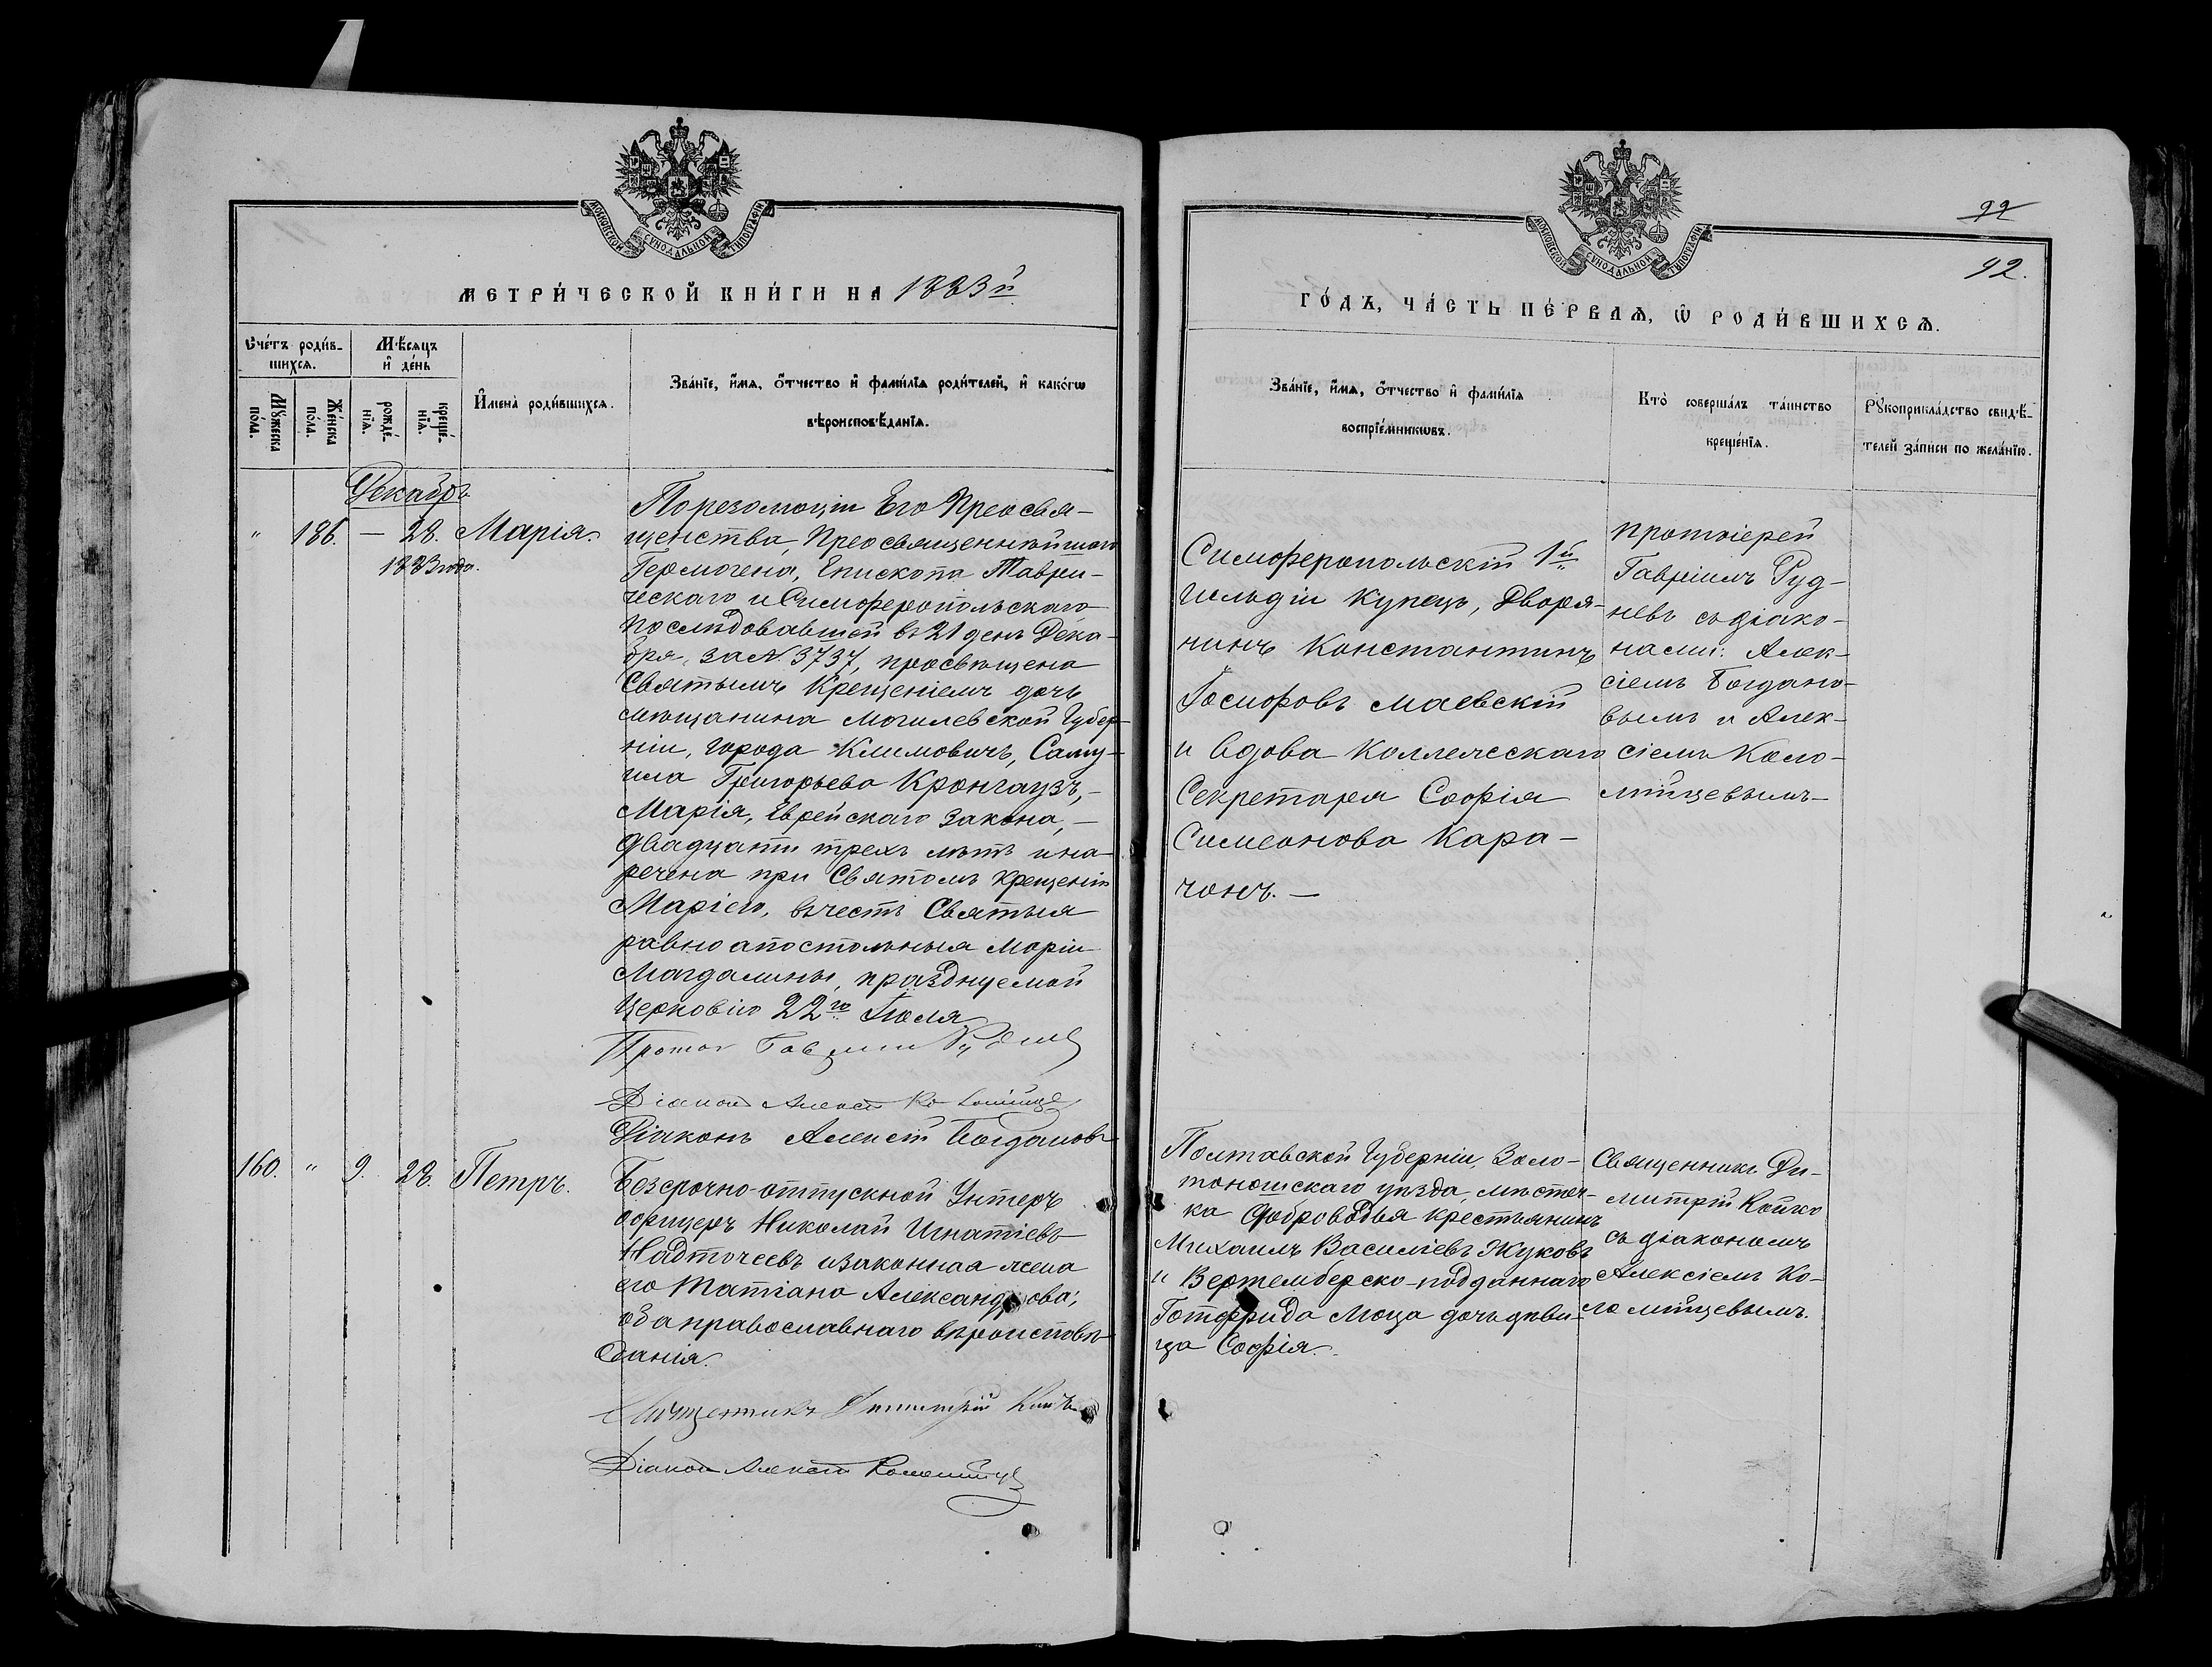 МОСКОВСКОЙ СУНОДАЛЬНОЙ ТИПОГРАФІИ
МЕТРИ́ЧЕСКОЙ КНИ́ГИ НА 1883й
Сче́тъ роди́в-
шихсѧ.
Мѣ́сѧцъ
и҆ де́нь
Мꙋ́жеска
по́ла.
Же́нска
по́ла.
рожде́-
нїѧ.
креще́-
нїѧ.
И҆мена̀ роди́вшихсѧ.
Зва́нїе, и҆́мѧ, ѻ҆́тчество и҆ фами́лїѧ роди́телей, и҆ како́гѡ
вѣроисповѣ́данїѧ.
Декабрь
" 186. — 28. Марія.
1883 года.
По резолюціи Его Преосвя-
щенства, Преосвященнѣйшаго
Гермогена, Епископа Таври-
ческаго и Симферопольскаго
послѣдовавшей въ 21 день Дека-
бря, за N 3737, просвѣщена
Святымъ Крещеніемъ дочь
мѣщанина Могилевской Губер-
ніи, города Климовичъ, Саму-
ила Григорьева Кронгаузъ,—
Марія, Еврейскаго закона,—
двадцати трехъ лѣтъ и на-
речена при Святомъ Крещеніи
Маріею, въ честь Святыя
равноапостольныя Маріи
Магдалины, празднуемой
Церковію 22го Іюля
Протоі Гавріилъ Рудневъ
Діаконъ Алексій Коломійцевъ
Діаконъ Алексій Богдановъ
160. " 9. 28. Петръ.
Безсрочно-отпускной Унтеръ
офицеръ Николай Игнатіевъ
Надточеевъ и законная жена
его Татіана Александрова;
оба православнаго вѣроисповѣ-
данія.
Священникъ Димитрій Койко
Діаконъ Алексій Коломійцевъ
МОСКОВСКОЙ СУНОДАЛЬНОЙ ТИПОГРАФІИ
92
92.
ГО́ДЪ, ЧА́СТЬ ПЕ́РВАѦ, Ѡ҆ РОДИ́ВШИХСѦ.
Зва́нїе, и҆́мѧ, ѻ҆́тчество и҆ фами́лїѧ
воспрїе́мникѡвъ.
Кто̀ соверша́лъ та́инство
креще́нїѧ.
Рꙋкоприкла́дство свидѣ́-
телей за́писи по жела́нїю.
Симферопольскій 1й
Гильдіи Купецъ, Дворя-
нинъ Константинъ
Іосифовъ Маевскій
и вдова Коллежскаго
Секретаря Софія
Симеонова Кара-
чонъ.—
Протоіерей
Гавріилъ Руд-
невъ съ діако-
нами: Алек-
сіемъ Богдано-
вымъ и Алек-
сіемъ Коло-
мійцевымъ—
Полтавской Губерніи, Золо-
тоношскаго уѣзда, мѣстеч-
ка Доброводья крестьянинъ
Михаилъ Василіевъ Жуковъ
и Вертемберско-подданнаго
Готфрида Моца дочь дѣви-
ца Софія.
Священникъ Ди-
митрій Койко
съ діакономъ
Алексіемъ Ко-
ломійцевымъ.